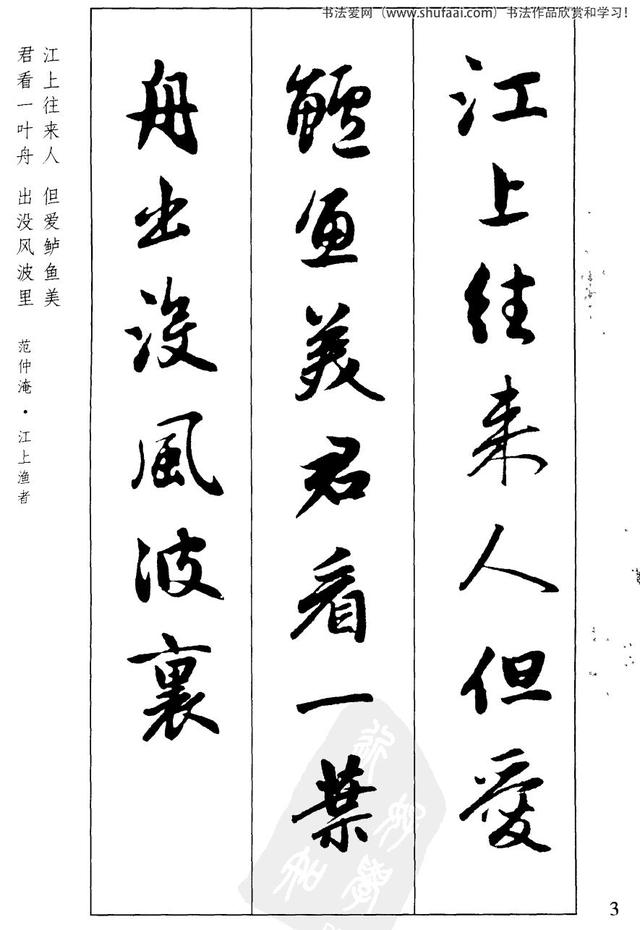 书法爱网（www.shufaai.com）书法作品欣赏和学习！
江上往来人但愛
鱸魚美君看一葉
舟出没風波裏
江上往来人 但爱鲈鱼美
君看一叶舟 出没风波里
范仲淹·江上渔者
3